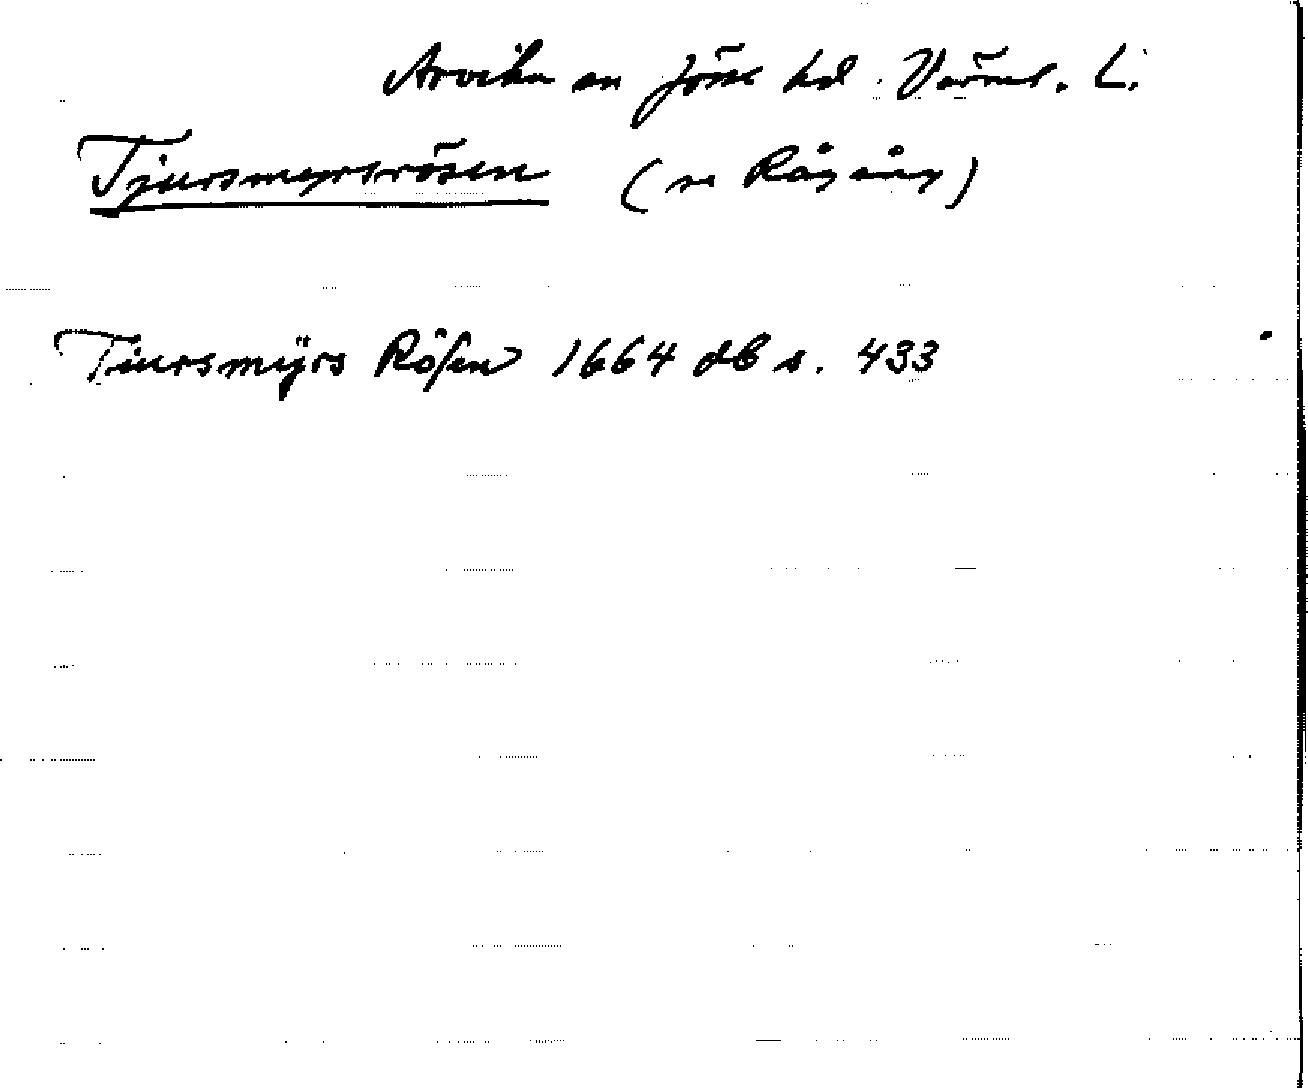 Arvika sn Jösse hd. Värml. L.
Tjursmyrsrösen (se Rågång)
Tiursmÿrs Rösen 1664 db s. 433